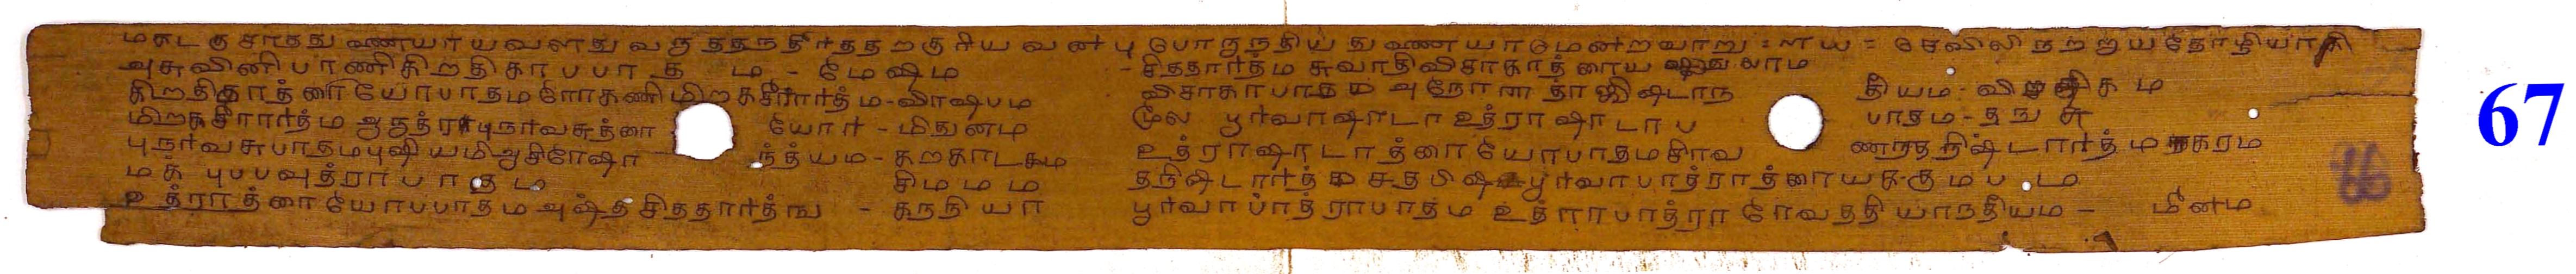 மகட குசாதது ணையாயவளது வறுததநதீாததறகுாிய வன பு பொறுநதிய துணையாமென்றவாறு : ளய = செவிலி நறறுயதோழியாகி
அசுவினிபாணிகிறதிகாபபாத ம - மேஷம - சிததாாத்ம சுவாதிவிசாகாத்ரைய துலாம
கிறதிகாத்ரையோபாதமரோகணிமிறகசீாாாத்ம-விாஷபம விசாகாபாதம அநோளதாஜிஷடாந தீயம - விறசசிகம
மிறகசீாாாத்ம ஆதுத்ராபுநாவசுத்ரை யோா - மிதுனம மூல பூாவாஷாடாஉத்ராஷாடாப பாதம - தநுசு
புநாவசுபாதமபுஷியமிஅசிரேஷா ந்த்யம - கறகாடகம உத்ராஷாடாத்ரையோபாதமசிரவ ணநதநிஷ்டாாத்ம மகரம
மக் புபபவுத்ராபாதம சிமமம தநிஷடாாத்ம சதபிஷபூாவாபாத்ராத்ரைய கும ப ம
உத்ராத்ரையோபபாதமஅஷ்தசிததாாத்ங - கநநியா பூாவாபாத்ராபாதம உத்ராபாத்ரா ரேவததியாநதீயம - மீனம
66
67